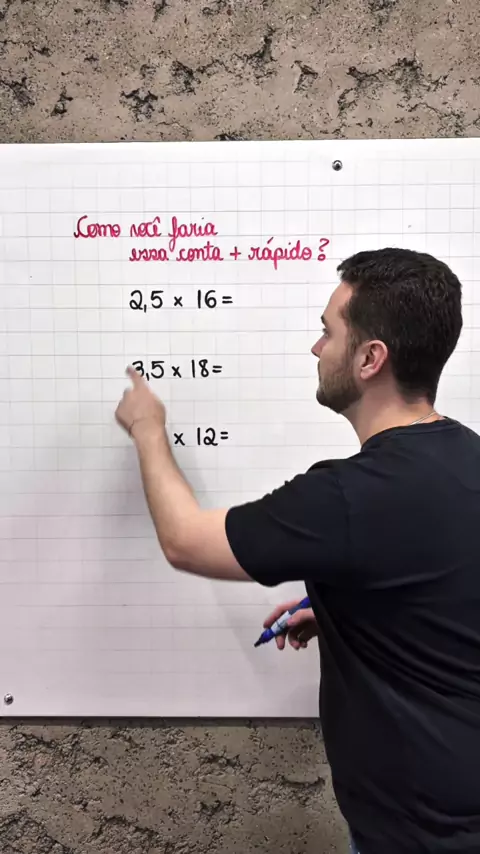 Como você faria
essa conta + rápido?
2,5 x 16=
3,5 x 18=
x 12=